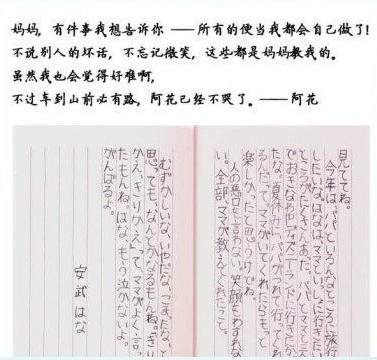 妈妈，有件事我想告诉你 ——所有的便当我都会自己做了!
不说别人的坏话，不忘记微笑，这些都是妈妈教我的。
虽然我也会觉得好难啊，
不过车到山前必有路，阿花已经不哭了。——阿花
見ててね。
今年は、パパといろんなところに旅行
したいな。はなはママといっしょに行きた
ところがたくさんあった。パパとママと三
でおきなわやディズニーランドに行きた
たな。夏休みにパパがつれて行ってくれ
るんだって。ママがいてくれたらもっと
楽しかったと思うけどね。
人の悪口を言わない。笑顔をわすれな
い。全部、ママが教えてくれたって。
むずかしいな、いやだな、こまったな、と
思っても、なんとかなるもんね。
かえ、きりかえって、ママがよく言っ
たもんね。はな、もう泣かないよ。
がんばるよ。
安武はな